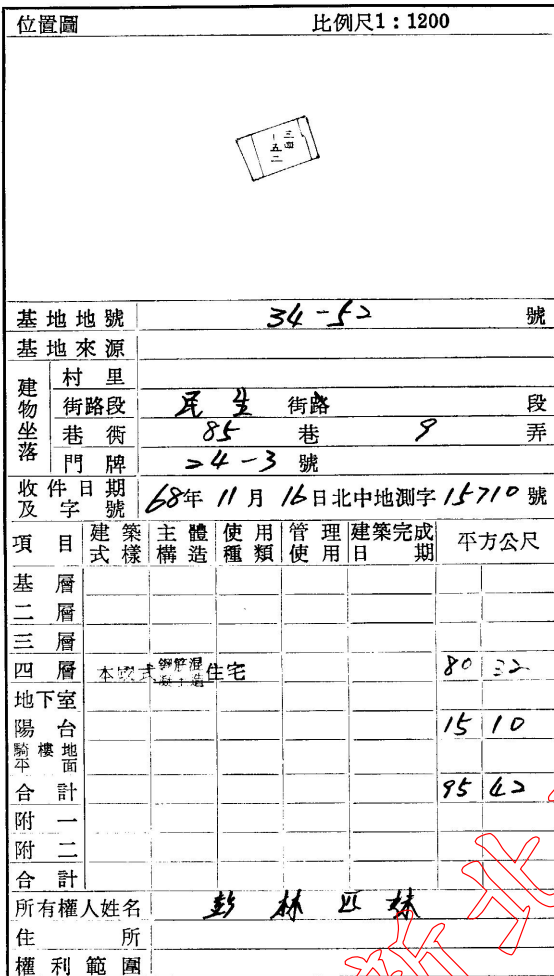 位置圖 比例尺1:1200
三四
一五二
基地地號 34-52 號
基地來源
建物坐落
村里
街路段 民生 街路 段
巷衖 85 巷 9 弄
門牌 24-3 號
收件日期及字號 68年 11月 16日北中地測字 15710 號
項目 建築式樣 主體構造 使用種類 管理使用 建築完成日期 平方公尺
基層
二層
三層
四層 本國式 鋼筋混凝土造 住宅 80 32
地下室
陽台 15 10
騎樓地平面
合計 95 42
附一
附二
合計
所有權人姓名 彭林 妹
住所
權利範圍
新北